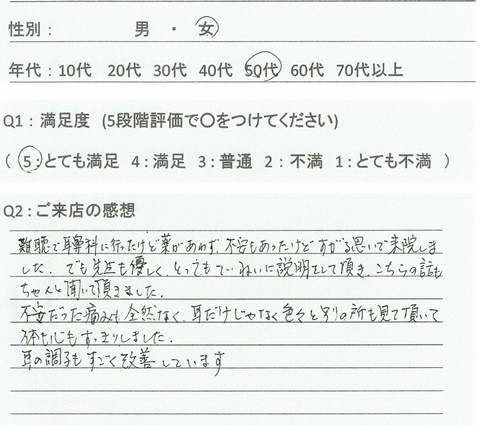 性別： 男 ・ 女
年代：10代 20代 30代 40代 50代 60代 70代以上
Q1：満足度 (5段階評価で○をつけてください)
( 5：とても満足 4：満足 3：普通 2：不満 1：とても不満 )
Q2：ご来店の感想
難聴で耳鼻科に行ったけど薬があわず、不安もあったけどすがる思いで来院しま
した。でも先生も優しく、とってもていねいに説明をして頂き、こちらの話も
ちゃんと聞いて頂きました。
不安だった痛みも全然なく、耳だけじゃなく色々と別の所も見て頂いて
体も心もすっきりしました。
耳の調子もすごく改善しています